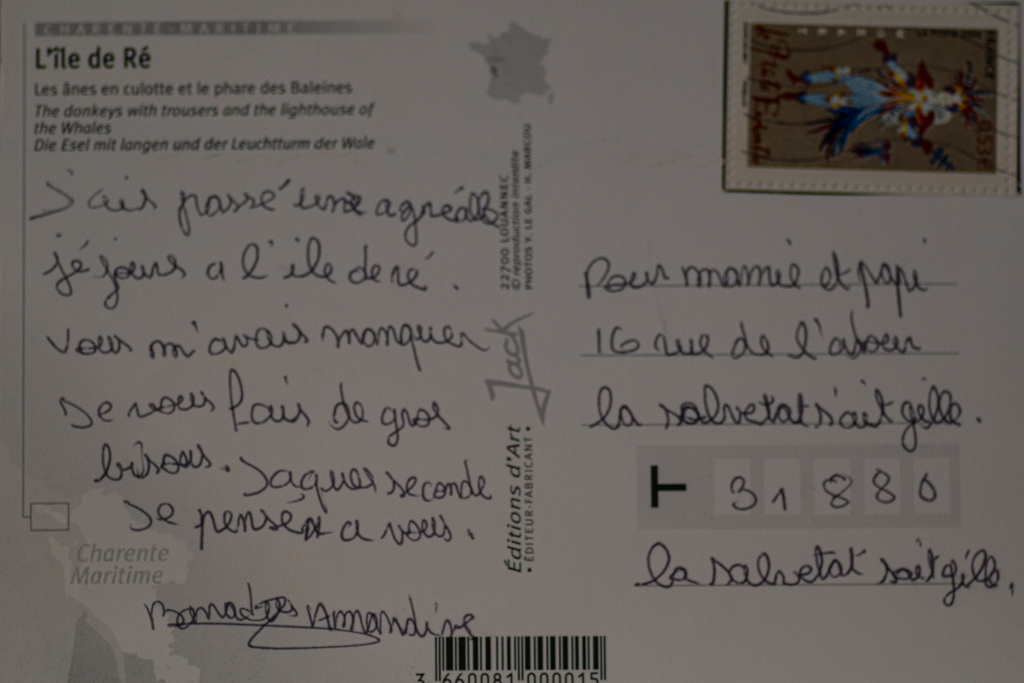 CHARENTE-MARITIME
L'île de Ré
Les ânes en culotte et le phare des Baleines
The donkeys with trousers and the lighthouse of
the Whales
Die Esel mit langen und der Leuchtturm der Wale
J'ais passé une agréable
séjours a l'ile de ré.
vous m'avais manquer
Je vous fais de gros
bisous. Jaques seconde
Je pensé a vous.
Amandine
Charente
Maritime
22700 LOUANNEC
© reproduction interdite
PHOTOS Y. LE GAL - H. MARCOU
Jack
Éditions d'Art
• ÉDITEUR-FABRICANT •
3 660081 000015
FRANCE
0,53€
Pour mamie et papi
16 rue de l'
la salvetat sait gille.
T 31 880
la salvetat sait gille.